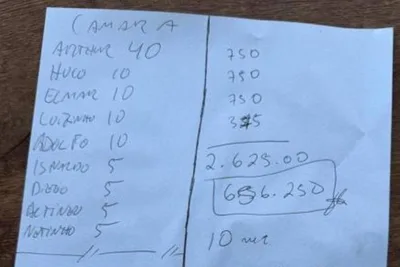 CAMARA
ARTHUR 40
HUGO 10
ELMAR 10
LUIZINHO 10
ADOLFO 10
ISNALDO 5
DIEGO 5
ALTINEU 5
NETINHO 5
750
750
750
375
2.625.00
656.250
10 mer